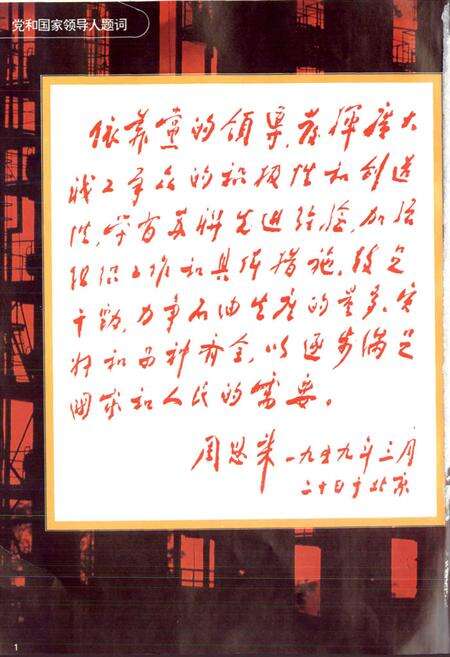 党和国家领导人题词
依靠黨的領導，發揮廣大
職工羣众的积极性和创造
性，学習苏联先進经验，加强
组织工作和具体措施，鼓足
干勁，力争石油生産的量多、質
好和品种齐全，以逐步滿足
國家和人民的需要。
周恩来 一九五九年三月
二十日于北京
1